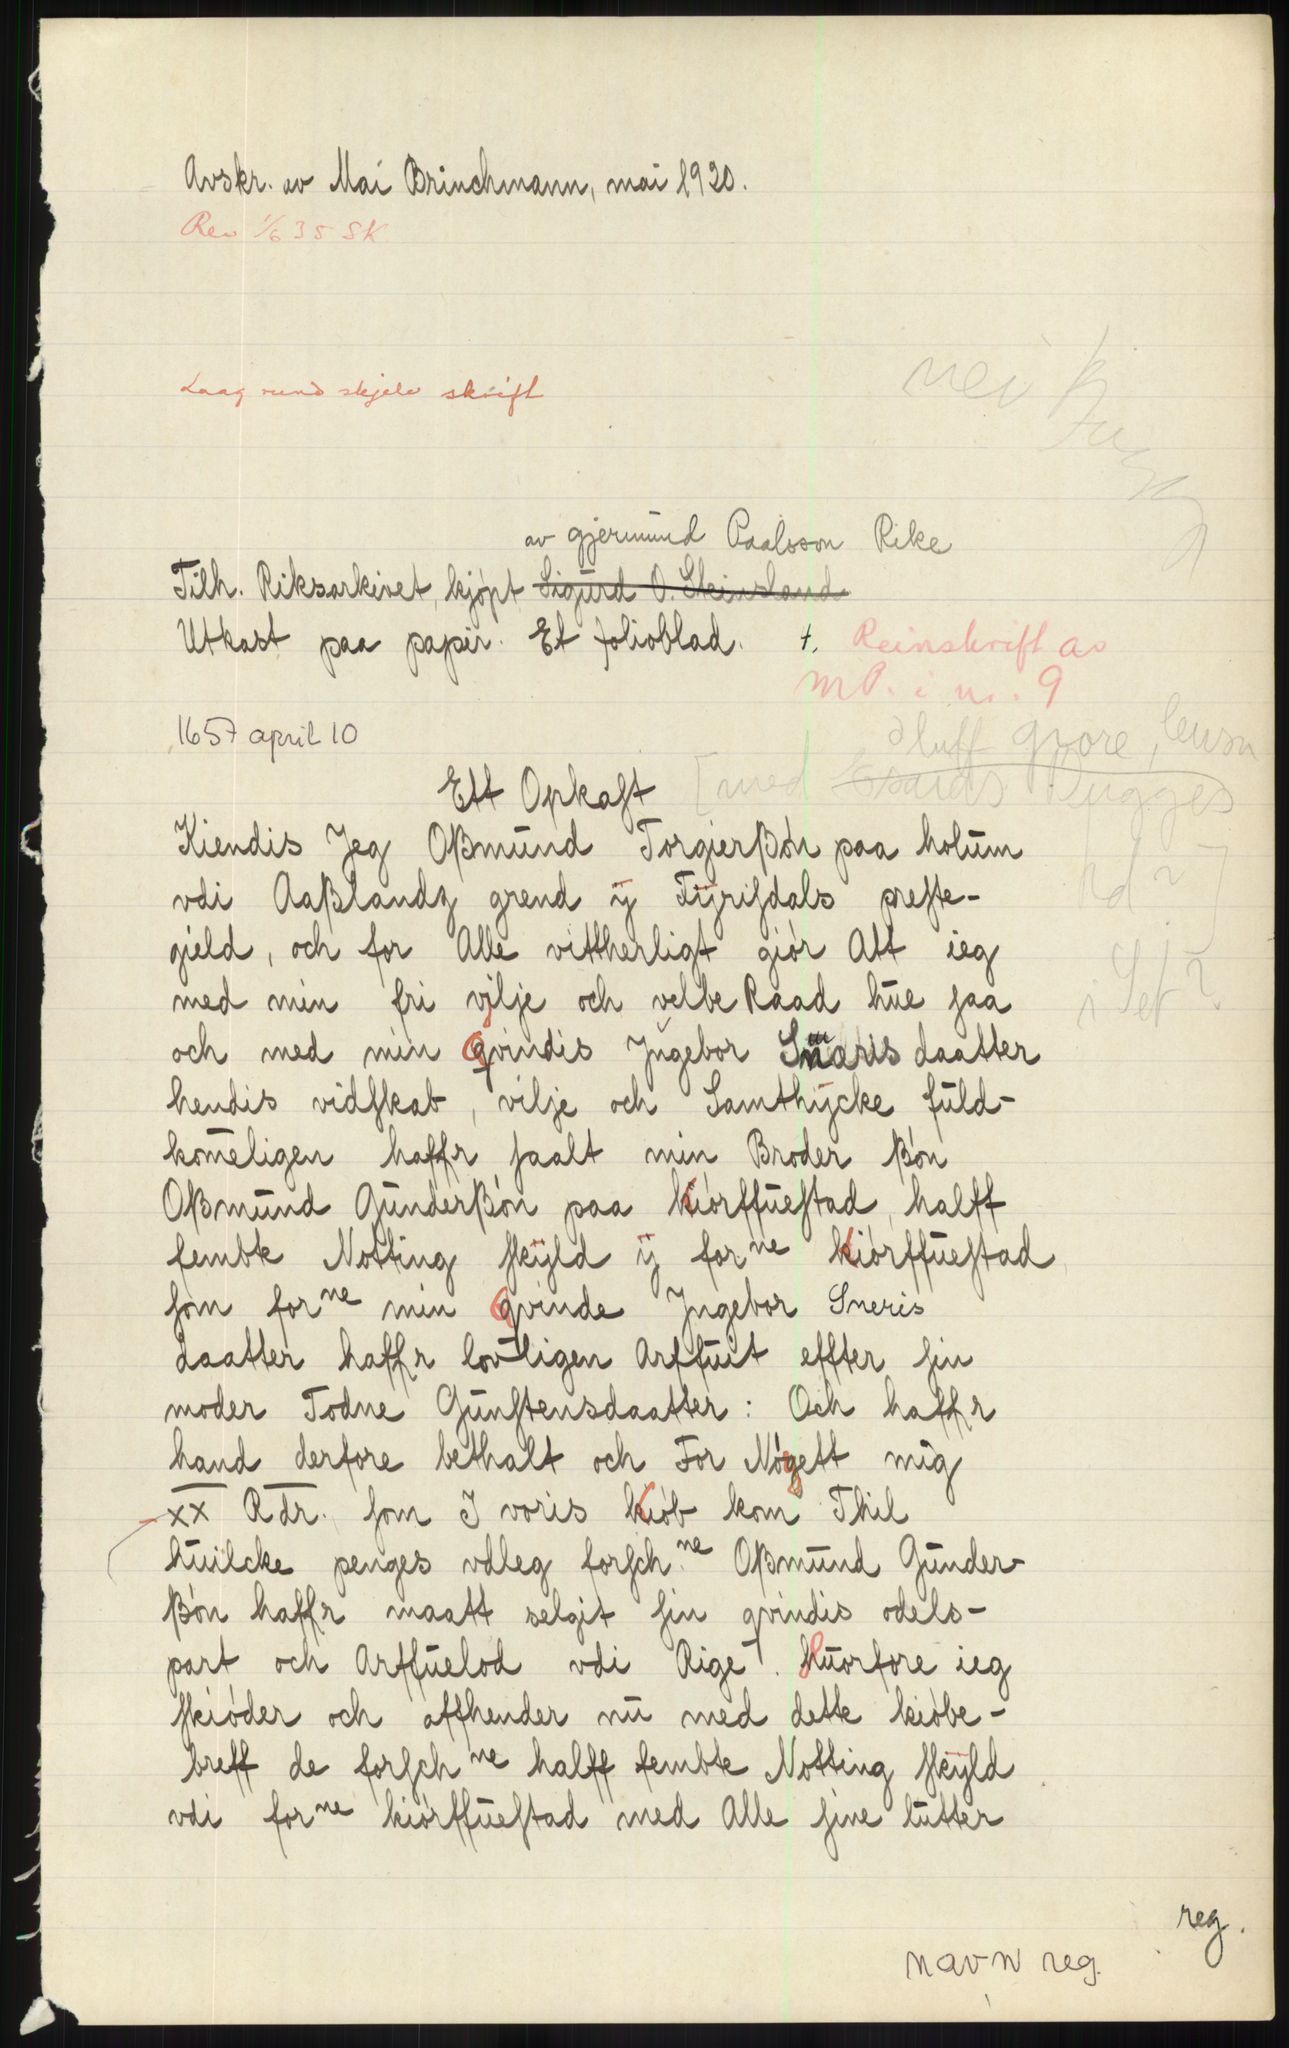 Avskr. av Mai Brinchmann, mai 1920.
Rev 1/6 35 SK
Laag rund skjelv skrift
nei
av gjermund Paalsson Rike
Tilh. Riksarkivet, kjøpt Sigurd O. Skeinsland
Utkast paa papir. Et folioblad. t. Reinskrift av
MP. i nr. 9
1657 april 10
Ett Opkaſt
Kiendis Jeg Oßmŭnd Torgierßón paa holŭm
vdi Aaßlandz grend ÿ Tÿriſdals preſte-
gield, och for Alle vittherligt giór Att ieg
med min fri vilje och velbe Raad hŭe ſaa
och med min qvindis Jŭgebor Snaris daatter
hendis vidſkab, vilje och Samthÿcke fŭld-
kom̄eligen haffr ſaalt min Broder ßón
Oßmŭnd Gŭnderßón paa kiórffŭeſtad, halff
fembte Notting ſkÿld ÿ forne kiórffŭeſtad
ſom forne min qvinde Jngebor Sneris
daatter haffr lovligen Arffŭit effter ſin
moder Todne Gŭnſtensdaatter: Och haffr
hand derfore bethalt och For Nógett mig
xx Rdr. ſom I voris kiób kom Thil
hŭilcke penges vdleg forſchne Oßmŭnd Gŭnder-
ßón haffr maatt selgit ſin qvindis odels-
part och Arffŭelod vdi Rige. Hŭorfore ieg
ſkióder och affhender nŭ med dette kióbe-
breff de forſchne halff fembte Notting ſkÿld
vdi forne kiórffŭeſtad med Alle ſine lŭtter
reg.
navn reg.